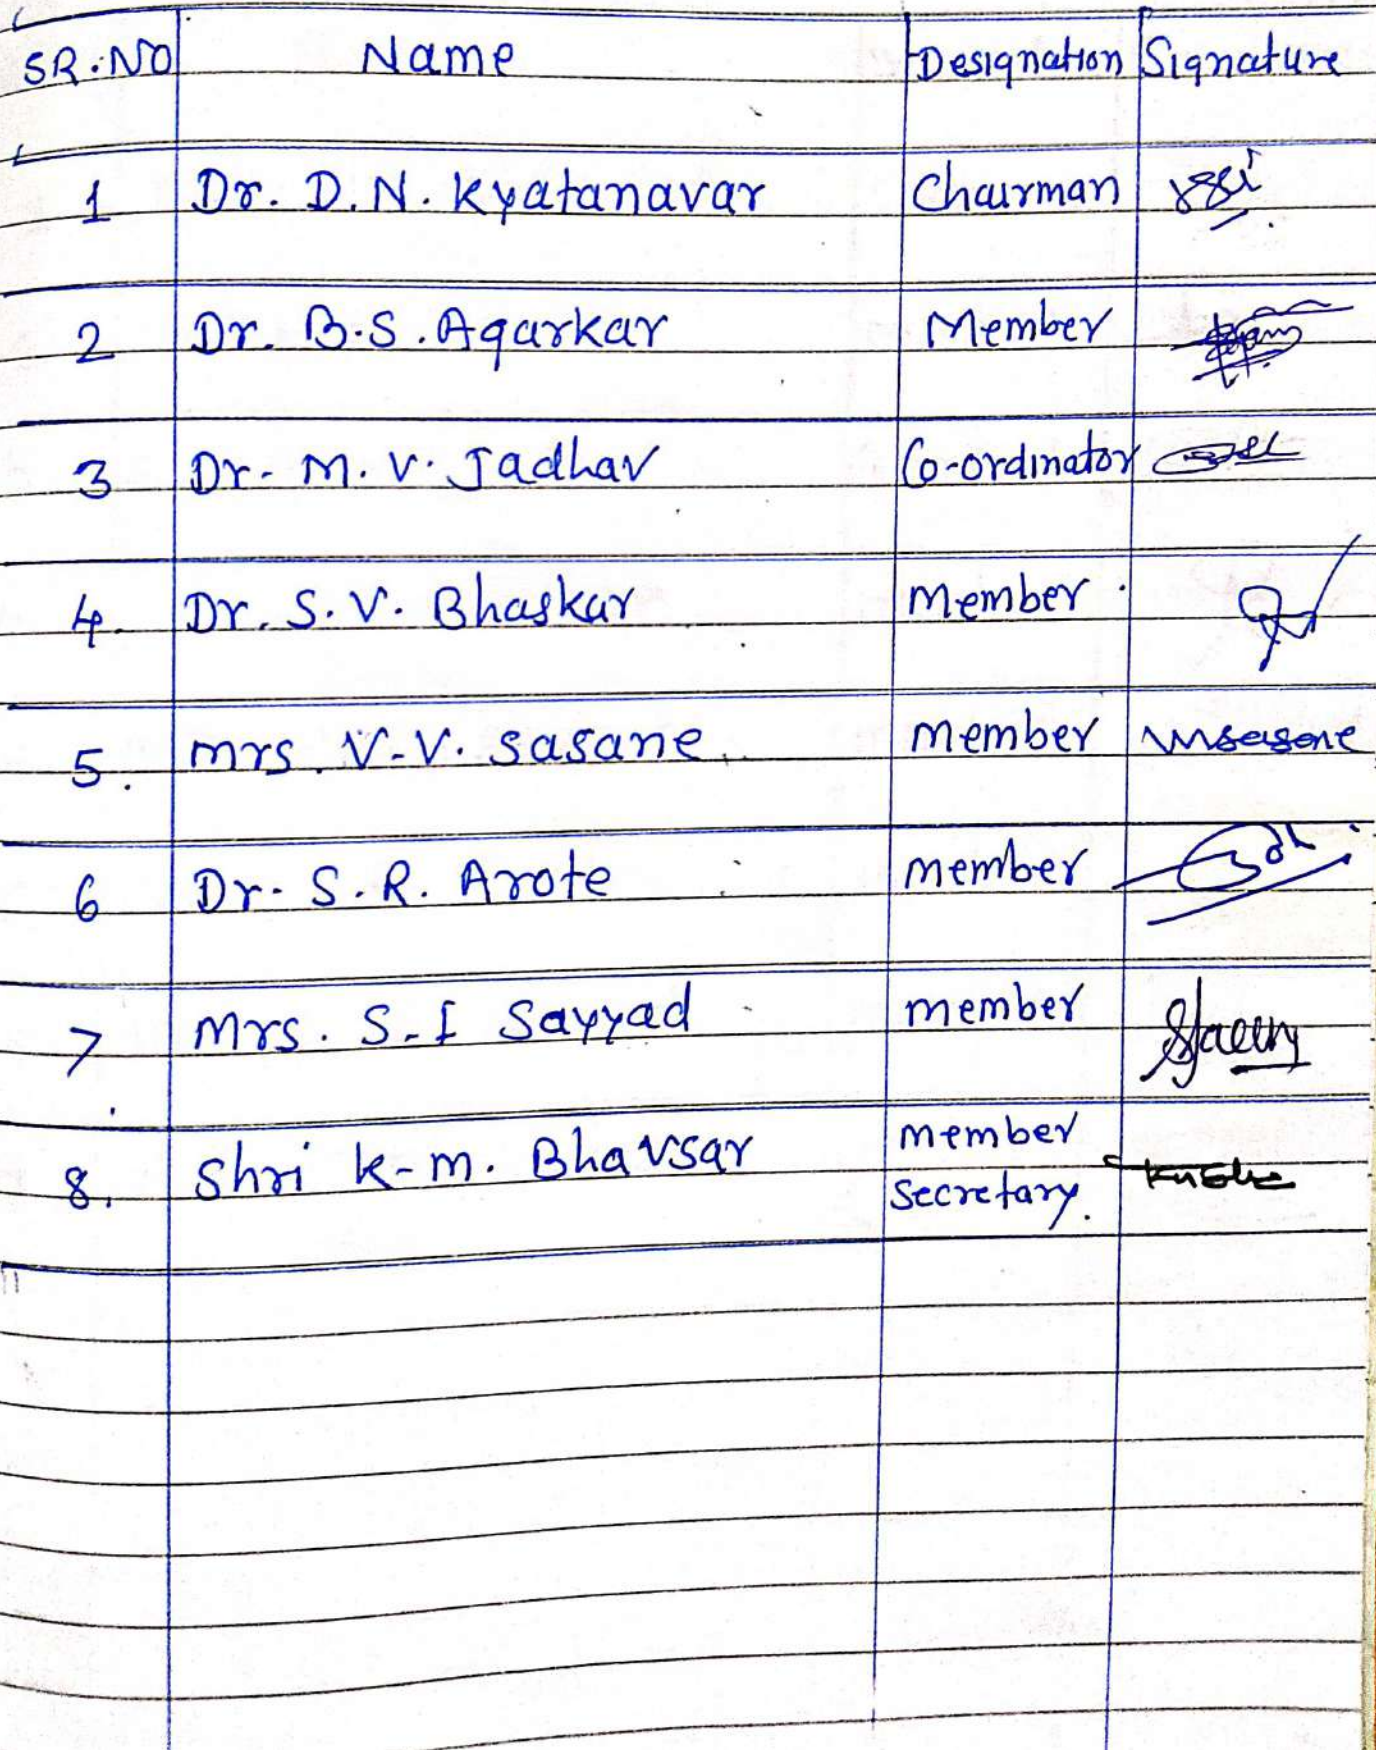 SR.NO Name Designation Signature
1 Dr. D.N. Kyatanavar Chairman
2 Dr. B.S. Agarkar Member
3 Dr. M.V. Jadhav Co-ordinator
4. Dr. S.V. Bhaskar Member
5. Mrs. V.V. Sasane member
6 Dr. S.R. Arote member
7 Mrs. S.I Sayyad member
8. Shri K.M. Bhavsar member
secretary.